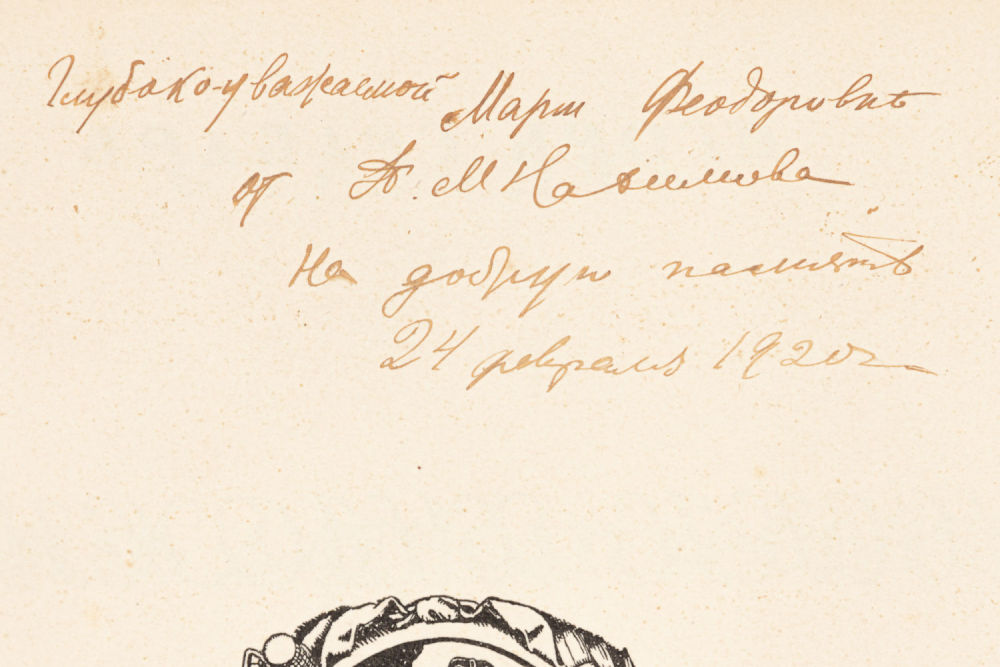 Глубоко-уважаемой Марии Феодоровнѣ
от М Нахимова
На добрую память
24 февраля 1920 г.